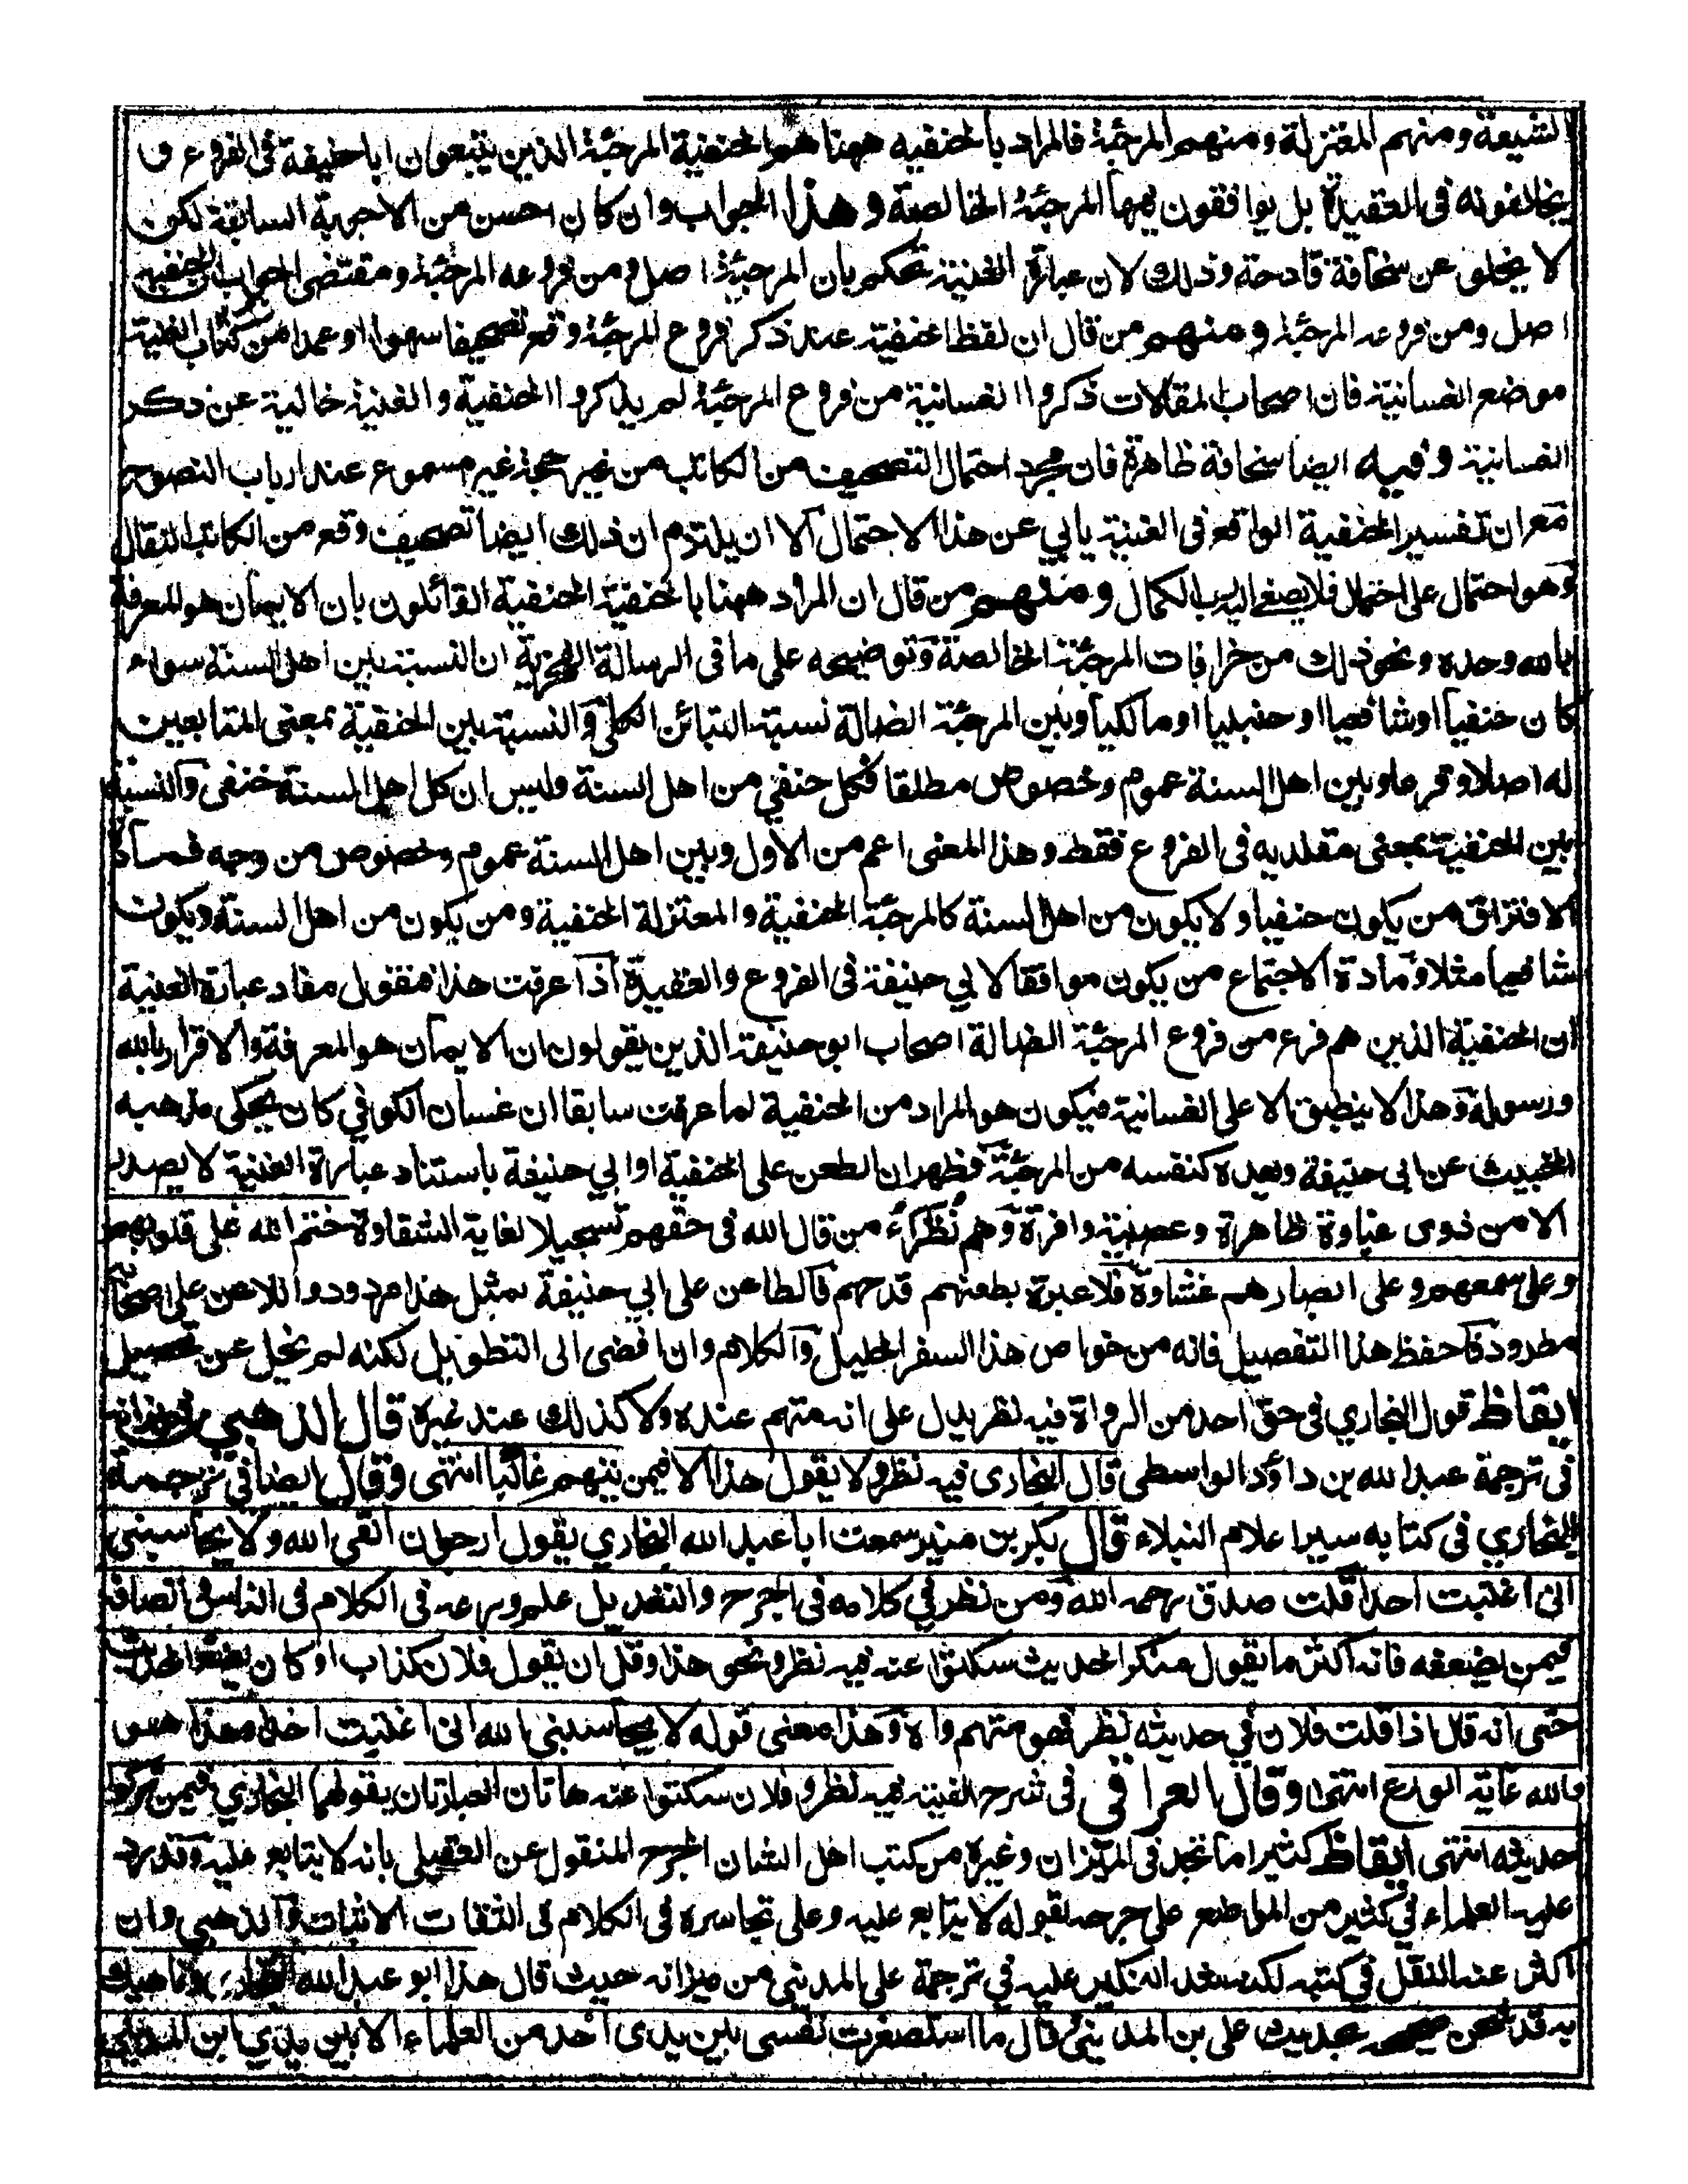 الشيعة ومنهم المعتزلة ومنهم المرجئة فالمراد بالحنفيه ههنا هم الحنفية المرجئة الذين يتبعون ابا حنيفة فى الفروع و
يخالفونه فى العقيدة بل يوافقون فيها المرجئة الخالصة وهذا الجواب وان كان احسن من الاجوبة السابقة لكن
لا يخلو عن سخافة قادحة وذلك لان عبارة الغنية تحكم بان المرجئة اصل ومن فروعه المرجئة ومقتضى الجواب ان الحنفيه
اصل ومن فروعه المرجئة ومنهم من قال ان لفظ الحنفية عند ذكر فروع المرجئة وقع تصحيفا سهوا او عمدا من كتاب الغنية
موضع الغسانية فان اصحاب المقالات ذكروا الغسانية من فروع المرجئة لم يذكروا الحنفية والغنية خالية عن ذكر
الغسانية وفيه ايضا سخافة ظاهرة فان مجرد احتمال التصحيف من الكاتب من غير حجة غير مسموع عند ارباب النصوح
مع ان تفسير الحنفية الواقع فى الغنية يابي عن هذا الاحتمال الا ان يلتزم ان ذلك ايضا تصحيف وقع من الكاتب النقال
وهو احتمال على احتمال فلا يصغى اليه رب الكمال ومنهم من قال ان المراد ههنا بالحنفية الحنفية القائلون بان الايمان هو المعرفة
بالله وحده ونحو ذلك من خرافات المرجئة الخالصة وتوضيحه على ما فى الرسالة الفخرية ان النسبة بين اهل السنة سواء
كان حنفيا او شافعيا او حنبليا او مالكيا وبين المرجئة الضالة نسبة التبائن الكلي والنسبة بين الحنفية بمعنى المتابعين
له اصلا وفرعا وبين اهل السنة عموم وخصوص مطلقا فكل حنفي من اهل السنة وليس ان كل اهل السنة حنفى والنسبة
بين الحنفية بمعنى مقلديه فى الفروع فقط وهذا المعنى اعم من الاول وبين اهل السنة عموم وخصوص من وجه فمادة
الافتراق من يكون حنفيا ولا يكون من اهل السنة كالمرجئة الحنفية والمعتزلة الحنفية ومن يكون من اهل السنة ويكون
شافعيا مثلا ومادة الاجتماع من يكون موافقا لابي حنيفة فى الفروع والعقيدة اذا عرفت هذا فنقول مفاد عبارة الغنية
ان الحنفية الذين هم فرع من فروع المرجئة الضالة اصحاب ابو حنيفة الذين يقولون ان الايمان هو المعرفة والاقرار بالله
ورسوله وهذا لا ينطبق الا على الغسانية فيكون هو المراد من الحنفية لما عرفت سابقا ان غسان الكوفي كان يحكى مذهبه
الخبيث عن ابى حنيفة ويعده كنفسه من المرجئة فظهر ان الطعن على الحنفية او ابي حنيفة باستناد عبارة الغنية لا يصدر
الا من ذوى غباوة ظاهرة وعصبية وافرة وهم نظراء من قال الله فى حقهم تسجيلا لغاية الشقاوة ختم الله على قلوبهم
وعلى سمعهم وعلى ابصارهم غشاوة فلا عبرة بطعنهم قدحهم فالطاعن على ابي حنيفة بمثل هذا مردود واللاعن على اصحابه
مطرود فاحفظ هذا التفصيل فانه من خواص هذا السفر الجليل والكلام وان افضى الى التطويل لكنه لم يخل عن تحصيل
ايقاظ قول البخاري فى حق احد من الرواة فيه نظر يدل على انه متهم عنده ولا كذلك عند غيره قال الذهبي فى ميزانه
فى ترجمة عبد الله بن داؤد الواسطي قال البخارى فيه نظر ولا يقول هذا الا فيمن يتهم غالبا انتهى وقال ايضا في ترجمة
البخاري فى كتابه سير اعلام النبلاء قال بكر بن منير سمعت ابا عبد الله البخاري يقول ارجو ان القى الله ولا يحاسبنى
انى اغتبت احدا قلت صدق رحمه الله ومن نظر في كلامه فى الجرح والتعديل علم ورعه فى الكلام فى الناس وانصافه
فيمن يضعفه فانه اكثر ما يقول منكر الحديث سكتوا عنه فيه نظر ونحو هذا وقل ان يقول فلان كذاب او كان يضع الحديث
حتى انه قال اذا قلت فلان في حديثه نظر فهو متهم واه وهذا معنى قوله لا يحاسبنى الله انى اغتبت احدا وهذا هو
والله غاية الورع انتهى وقال العراقي فى شرح الفيته فيه نظر وفلان سكتوا عنه هاتان العبارتان يقولهما البخاري فيمن تركوا
حديثه انتهى ايقاظ كثيرا ما تجد فى الميزان وغيره من كتب اهل الشان الجرح المنقول عن العقيلى بانه لا يتابع عليه وقد رد
عليه العلماء في كثير من المواضع على جرحه بقوله لا يتابع عليه وعلى تجاسره فى الكلام فى الثقات الاثبات والذهبي وان
اكثر عنه النقل في كتبه لكنه شدد النكير عليه في ترجمة على المديني من ميزانه حيث قال هذا ابو عبد الله البخاري وناهيك
به قد شحن صحيحه بحديث على بن المديني وقال ما استصغرت نفسى بين يدى احد من العلماء الا بين يدي ابن المديني